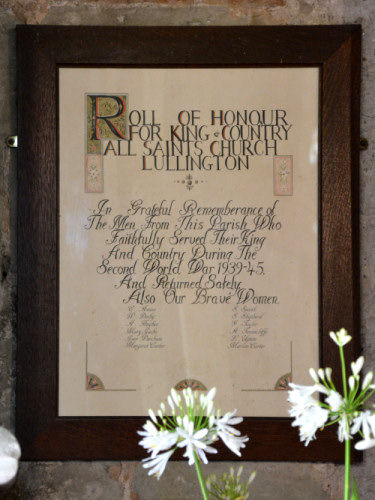 ROLL OF HONOUR
FOR KING & COUNTRY
ALL SAINTS CHURCH
LULLINGTON
In Grateful Rememberance of
The Men From This Parish Who
Faithfully Served Their King
And Country During The
Second World War 1939-45.
And Returned Safely.
Also Our Brave Women.